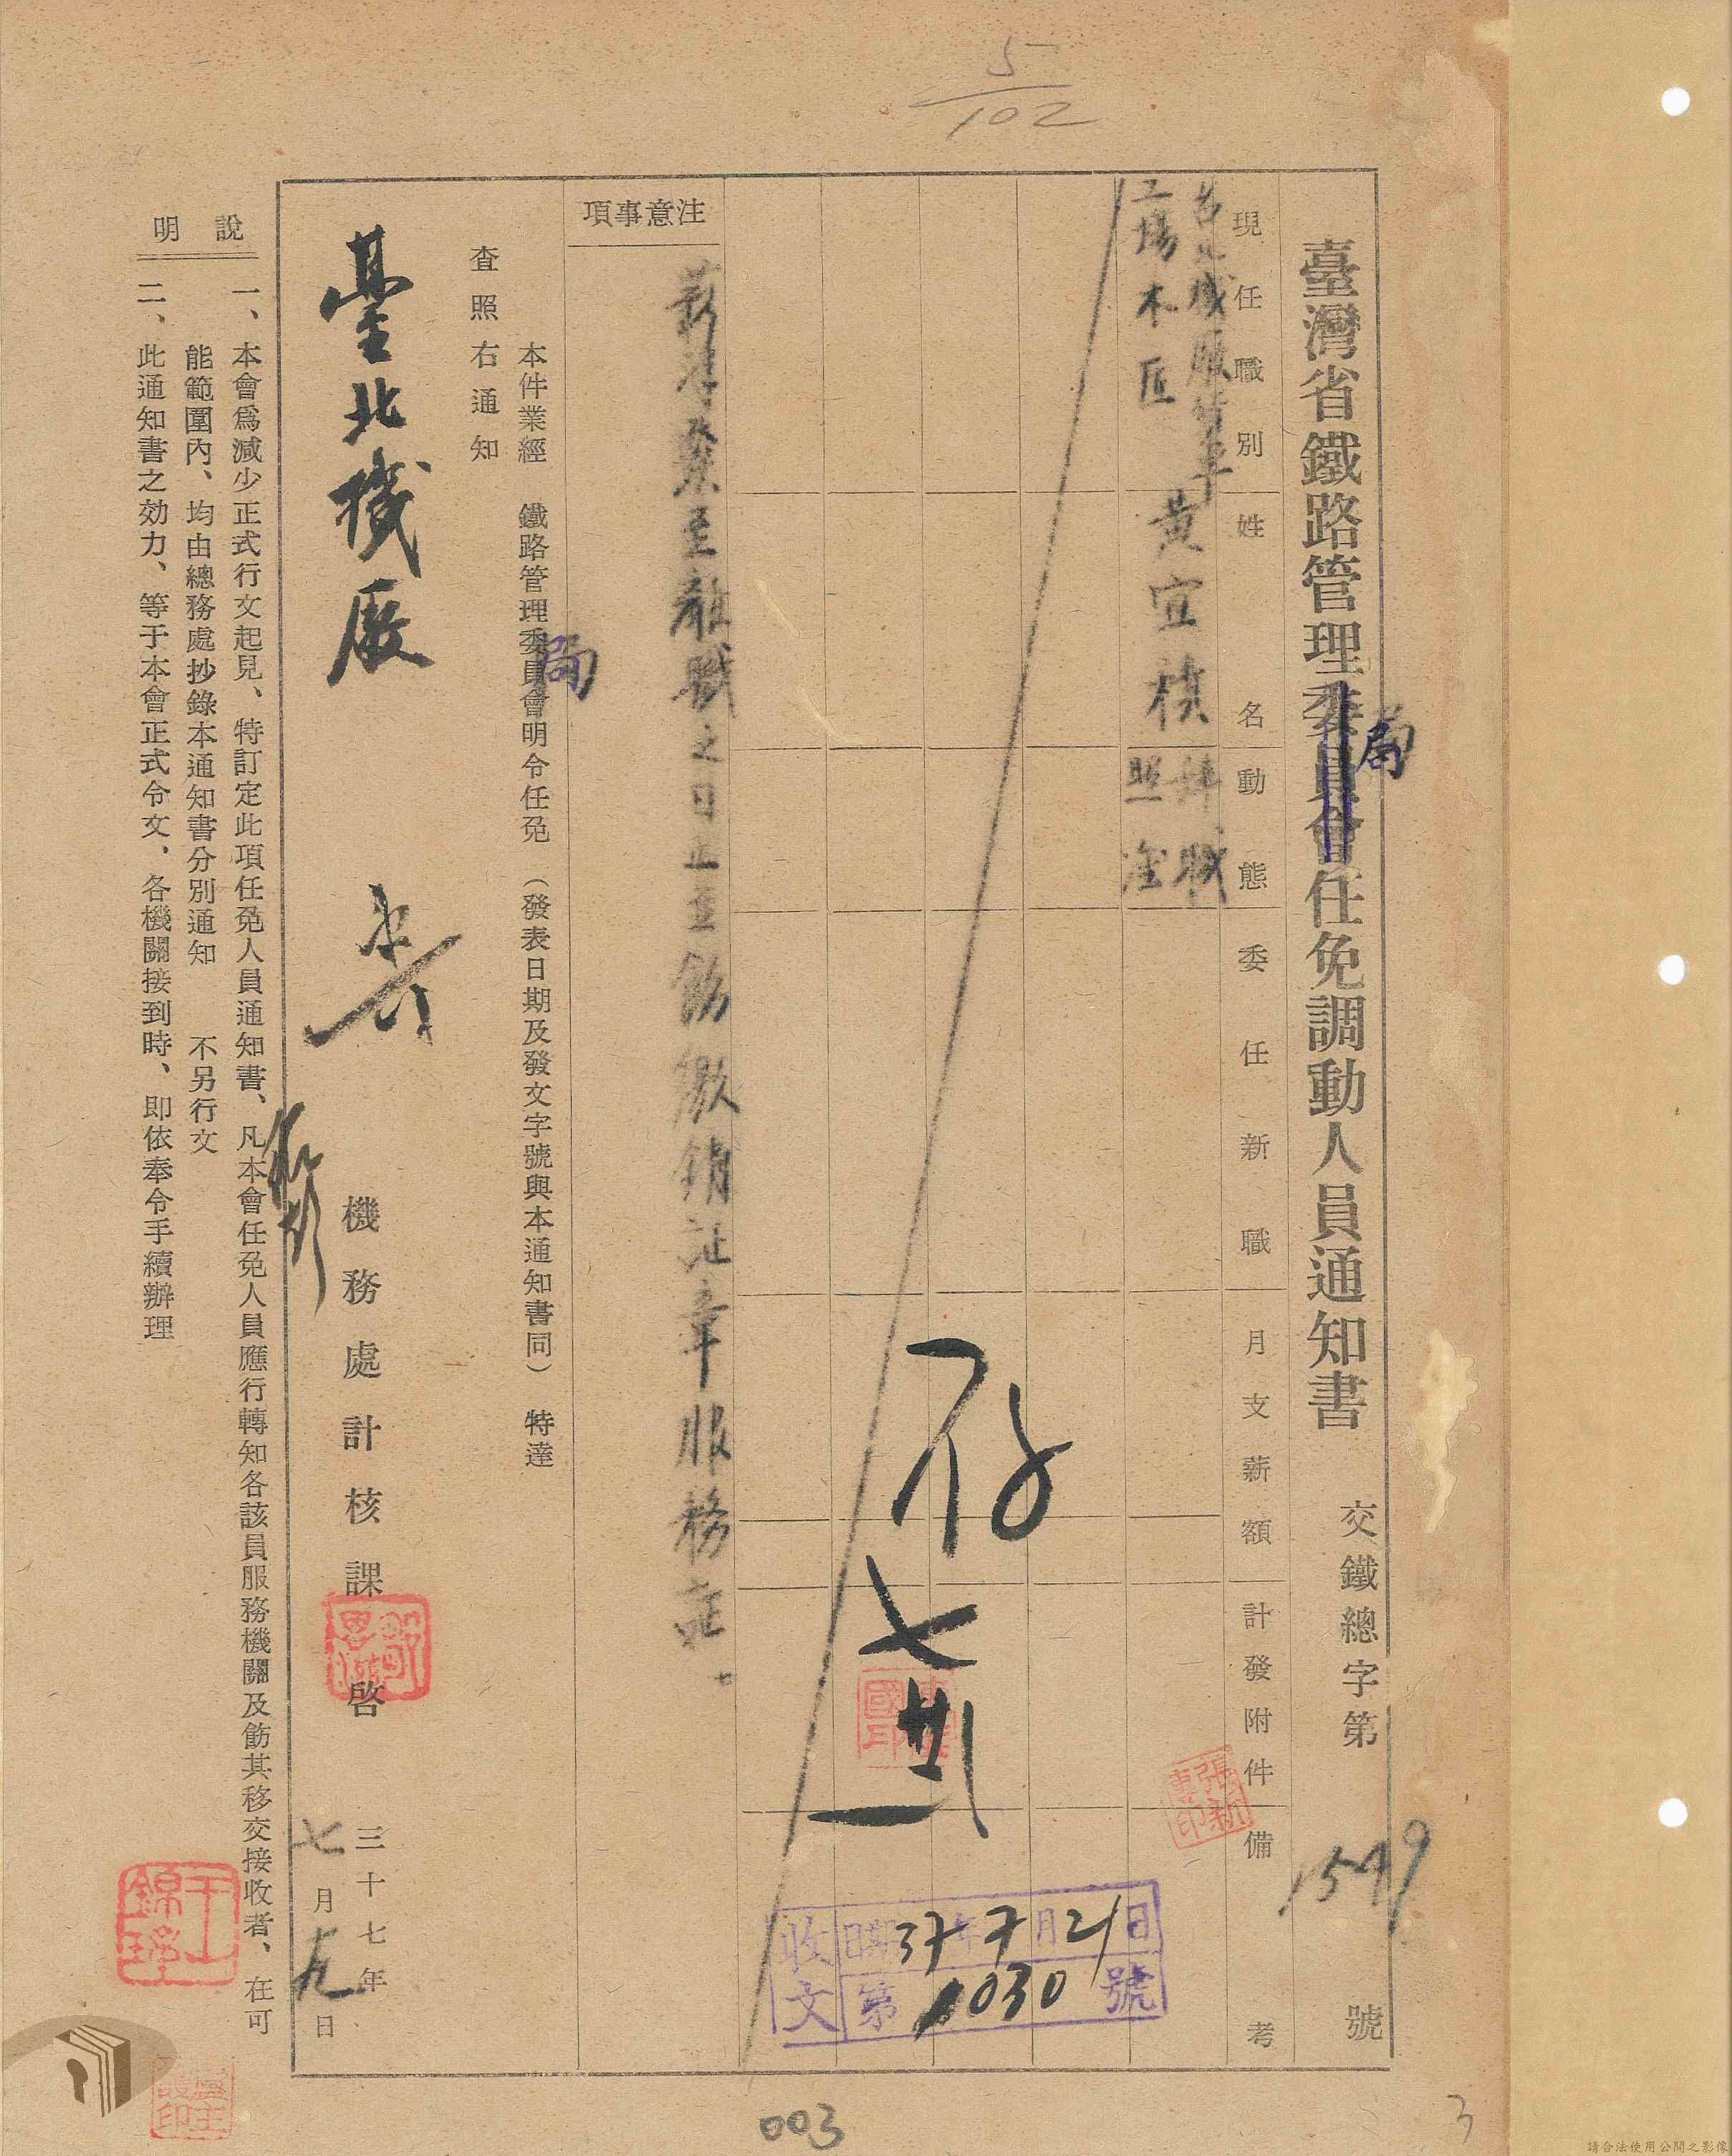 5/102
臺灣省鐵路管理委員會任免調動人員通知書 交鐵總字第1549號
局
現任職別 姓名 動態 委任新職 月支薪額 計發附件 備考
台北機廠客車
工場木匠
黃宜楨
辭職
照准
存
七廿一
張新專印
收文 民國37年7月21日
第1030號
注意事項
薪津發至離職之日止並飭繳銷証章服務証。
本件業經 鐵路管理委員會明令任免(發表日期及發文字號與本通知書同) 特達
局
查照右通知
臺北機廠
機務處計核課啓
三十七年
七月十九日
說明
一、本會爲減少正式行文起見、特訂定此項任免人員通知書、凡本會任免人員應行轉知各該員服務機關及飭其移交接收者、在可
能範圍內、均由總務處抄錄本通知書分別通知 不另行文
二、此通知書之効力、等于本會正式令文、各機關接到時、即依奉令手續辦理
003
3
請合法使用公開之影像